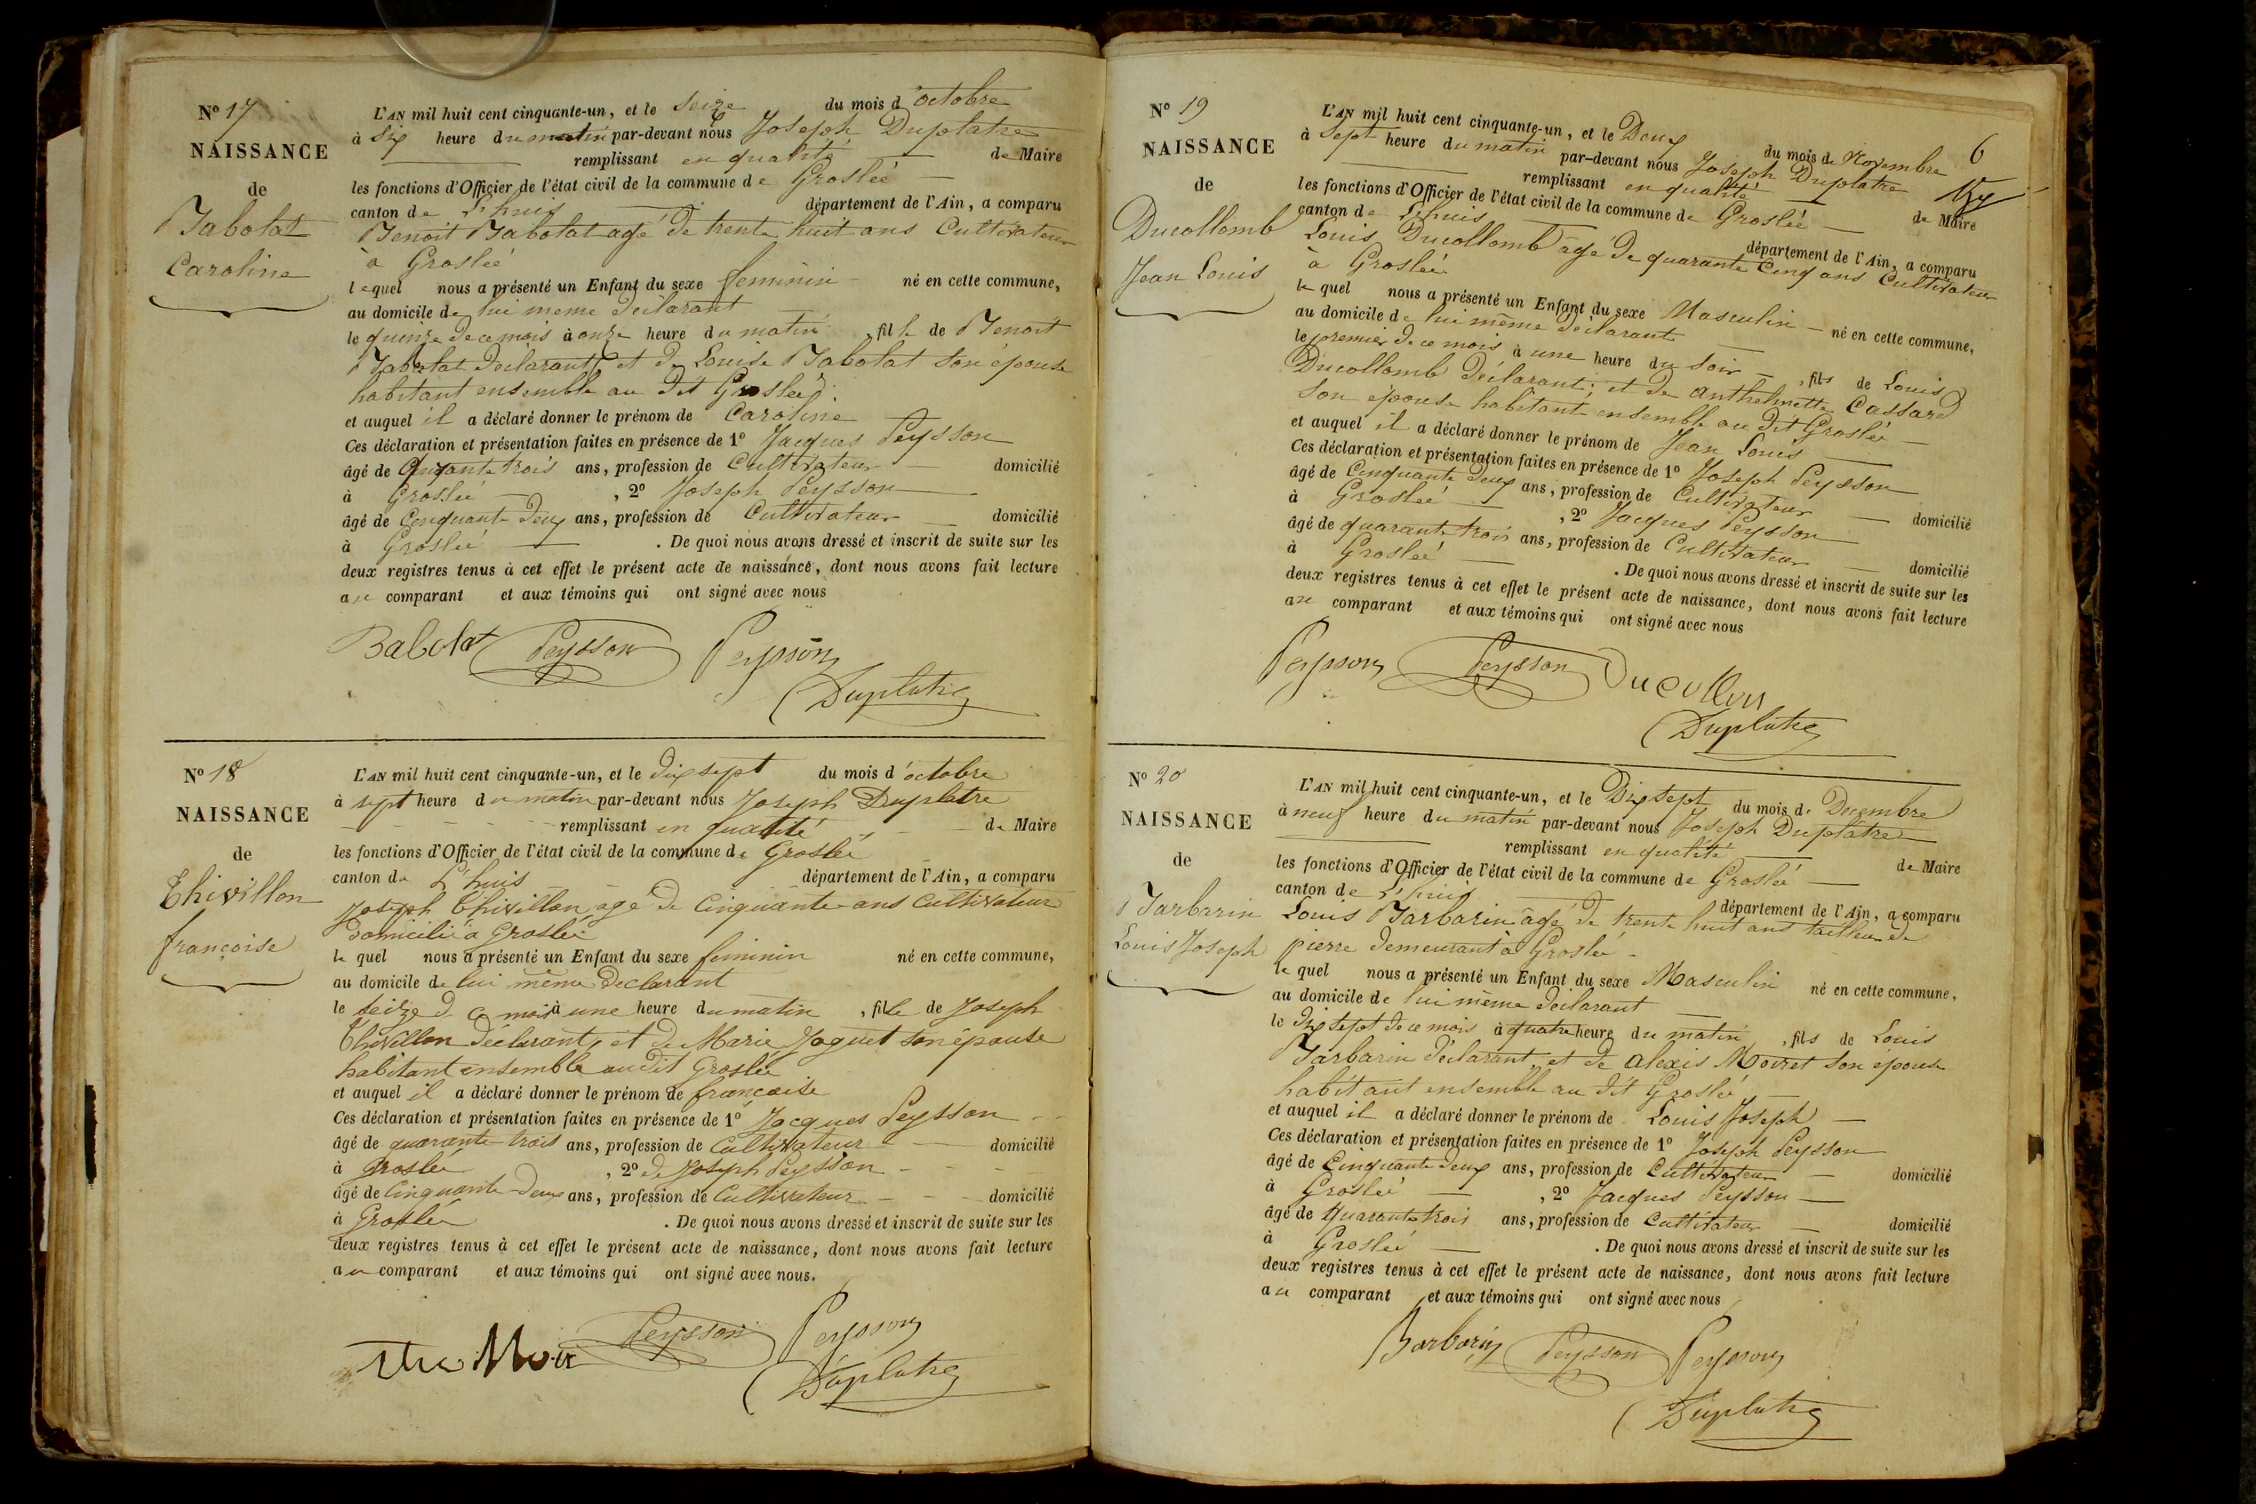 N° 17
NAISSANCE
de
Babolat
Caroline
L'AN mil huit cent cinquante-un, et le Seize du mois d'octobre
à six heure du matin par-devant nous Joseph Duplatre
remplissant en qualité de Maire
les fonctions d'Officier de l'état civil de la commune de Groslée
canton de L'huis département de l'Ain, a comparu
Benoit Babolat agé de trente huit ans Cultivateur
à Groslée
lequel nous a présenté un Enfant du sexe féminin né en cette commune,
au domicile de lui meme déclarant
le quinze de ce mois à onze heure du matin, fille de Benoit
Babolat déclarant, et de Louise Babolat son épouse
habitant ensemble au dit Groslée
et auquel il a déclaré donner le prénom de Caroline
Ces déclaration et présentation faites en présence de 1° Jacques Peysson
âgé de quarante trois ans, profession de Cultivateur domicilié
à Groslée, 2° Joseph Peysson
âgé de Cinquante deux ans, profession de Cultivateur domicilié
à Groslée. De quoi nous avons dressé et inscrit de suite sur les
deux registres tenus à cet effet le présent acte de naissance, dont nous avons fait lecture
au comparant et aux témoins qui ont signé avec nous
Babolat Peysson Peysson
Duplatre
N° 18
NAISSANCE
de
Thivillon
françoise
L'AN mil huit cent cinquante-un, et le dix sept du mois d'octobre
à sept heure du matin par-devant nous Joseph Duplatre
remplissant en qualité de Maire
les fonctions d'Officier de l'état civil de la commune de Groslée
canton de L'huis département de l'Ain, a comparu
Joseph Thivillon agé de Cinquante ans Cultivateur
domicilié à Groslée
le quel nous a présenté un Enfant du sexe féminin né en cette commune,
au domicile de lui même declarant
le seize d ce mois à une heure du matin, fille de Joseph
Thivillon déclarant, et de Marie Joguet son épouse
habitant ensemble audit Groslée
et auquel il a déclaré donner le prénom de françoise
Ces déclaration et présentation faites en présence de 1° Jacques Peysson
âgé de quarante trois ans, profession de Cultivateur domicilié
à Groslée, 2° de Joseph Peysson
âgé de Cinquante-deux ans, profession de Cultivateur domicilié
à Groslée. De quoi nous avons dressé et inscrit de suite sur les
deux registres tenus à cet effet le présent acte de naissance, dont nous avons fait lecture
au comparant et aux témoins qui ont signé avec nous.
Peysson Peysson
Duplatre
6
N° 19
NAISSANCE
de
Ducollomb
Jean Louis
L'AN mil huit cent cinquante-un, et le Deux du mois de Novembre
à Sept heure du matin par-devant nous Joseph Duplatre
remplissant en qualité de Maire
les fonctions d'Officier de l'état civil de la commune de Groslée
canton de Lhuis département de l'Ain, a comparu
Louis Ducollomb agé de quarante Cinq ans Cultivateur
à Groslée
le quel nous a présenté un Enfant du sexe Masculin né en cette commune,
au domicile de lui même déclarant
le premier de ce mois à une heure du soir, fils de Louis
Ducollomb déclarant, et de anthelmette Cassard
Son épouse habitant ensemble au dit Groslée
et auquel il a déclaré donner le prénom de Jean Louis
Ces déclaration et présentation faites en présence de 1° Joseph Peysson
âgé de Cinquante deux ans, profession de Cultivateur domicilié
à Groslée, 2° Jacques Peysson
âgé de quarante trois ans, profession de Cultivateur domicilié
à Groslée. De quoi nous avons dressé et inscrit de suite sur les
deux registres tenus à cet effet le présent acte de naissance, dont nous avons fait lecture
au comparant et aux témoins qui ont signé avec nous
Peysson Peysson
Duplatre
N° 20
NAISSANCE
de
Barbarin
Louis Joseph
L'AN mil huit cent cinquante-un, et le Dix sept du mois de Decembre
à neuf heure du matin par-devant nous Joseph Duplatre
remplissant en qualité de Maire
les fonctions d'Officier de l'état civil de la commune de Groslée
canton de L'huis département de l'Ain, a comparu
Louis Barbarin âgé de trente huit ans tailleur de
pierre demeurant à Groslée
le quel nous a présenté un Enfant du sexe Masculin né en cette commune,
au domicile de lui même déclarant
le dix sept de ce mois à quatre heure du matin, fils de Louis
Barbarin déclarant, et de alexis Moiret son épouse
habitant ensemble au dit Groslée
et auquel il a déclaré donner le prénom de Louis Joseph
Ces déclaration et présentation faites en présence de 1° Joseph Peysson
âgé de Cinquante deux ans, profession de Cultivateur domicilié
à Groslée, 2° Jacques Peysson
âgé de quarante trois ans, profession de Cultivateur domicilié
à Groslée. De quoi nous avons dressé et inscrit de suite sur les
deux registres tenus à cet effet le présent acte de naissance, dont nous avons fait lecture
au comparant et aux témoins qui ont signé avec nous
Barbarin Peysson Peysson
Duplatre